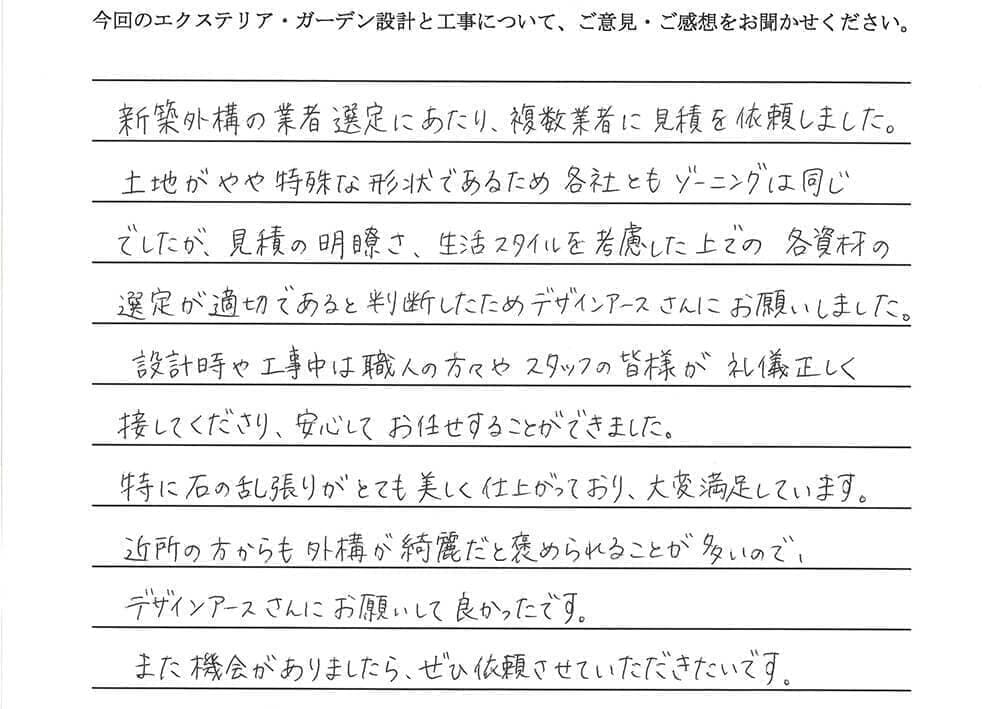 今回のエクステリア・ガーデン設計と工事について、ご意見・ご感想をお聞かせください。
新築外構の業者選定にあたり、複数業者に見積を依頼しました。
土地がやや特殊な形状であるため各社ともゾーニングは同じ
でしたが、見積の明瞭さ、生活スタイルを考慮した上での各資材の
選定が適切であると判断したためデザインアースさんにお願いしました。
設計時や工事中は職人の方々やスタッフの皆様が礼儀正しく
接してくださり、安心してお任せすることができました。
特に石の乱張りがとても美しく仕上がっており、大変満足しています。
近所の方からも外構が綺麗だと褒められることが多いので、
デザインアースさんにお願いして良かったです。
また機会がありましたら、ぜひ依頼させていただきたいです。